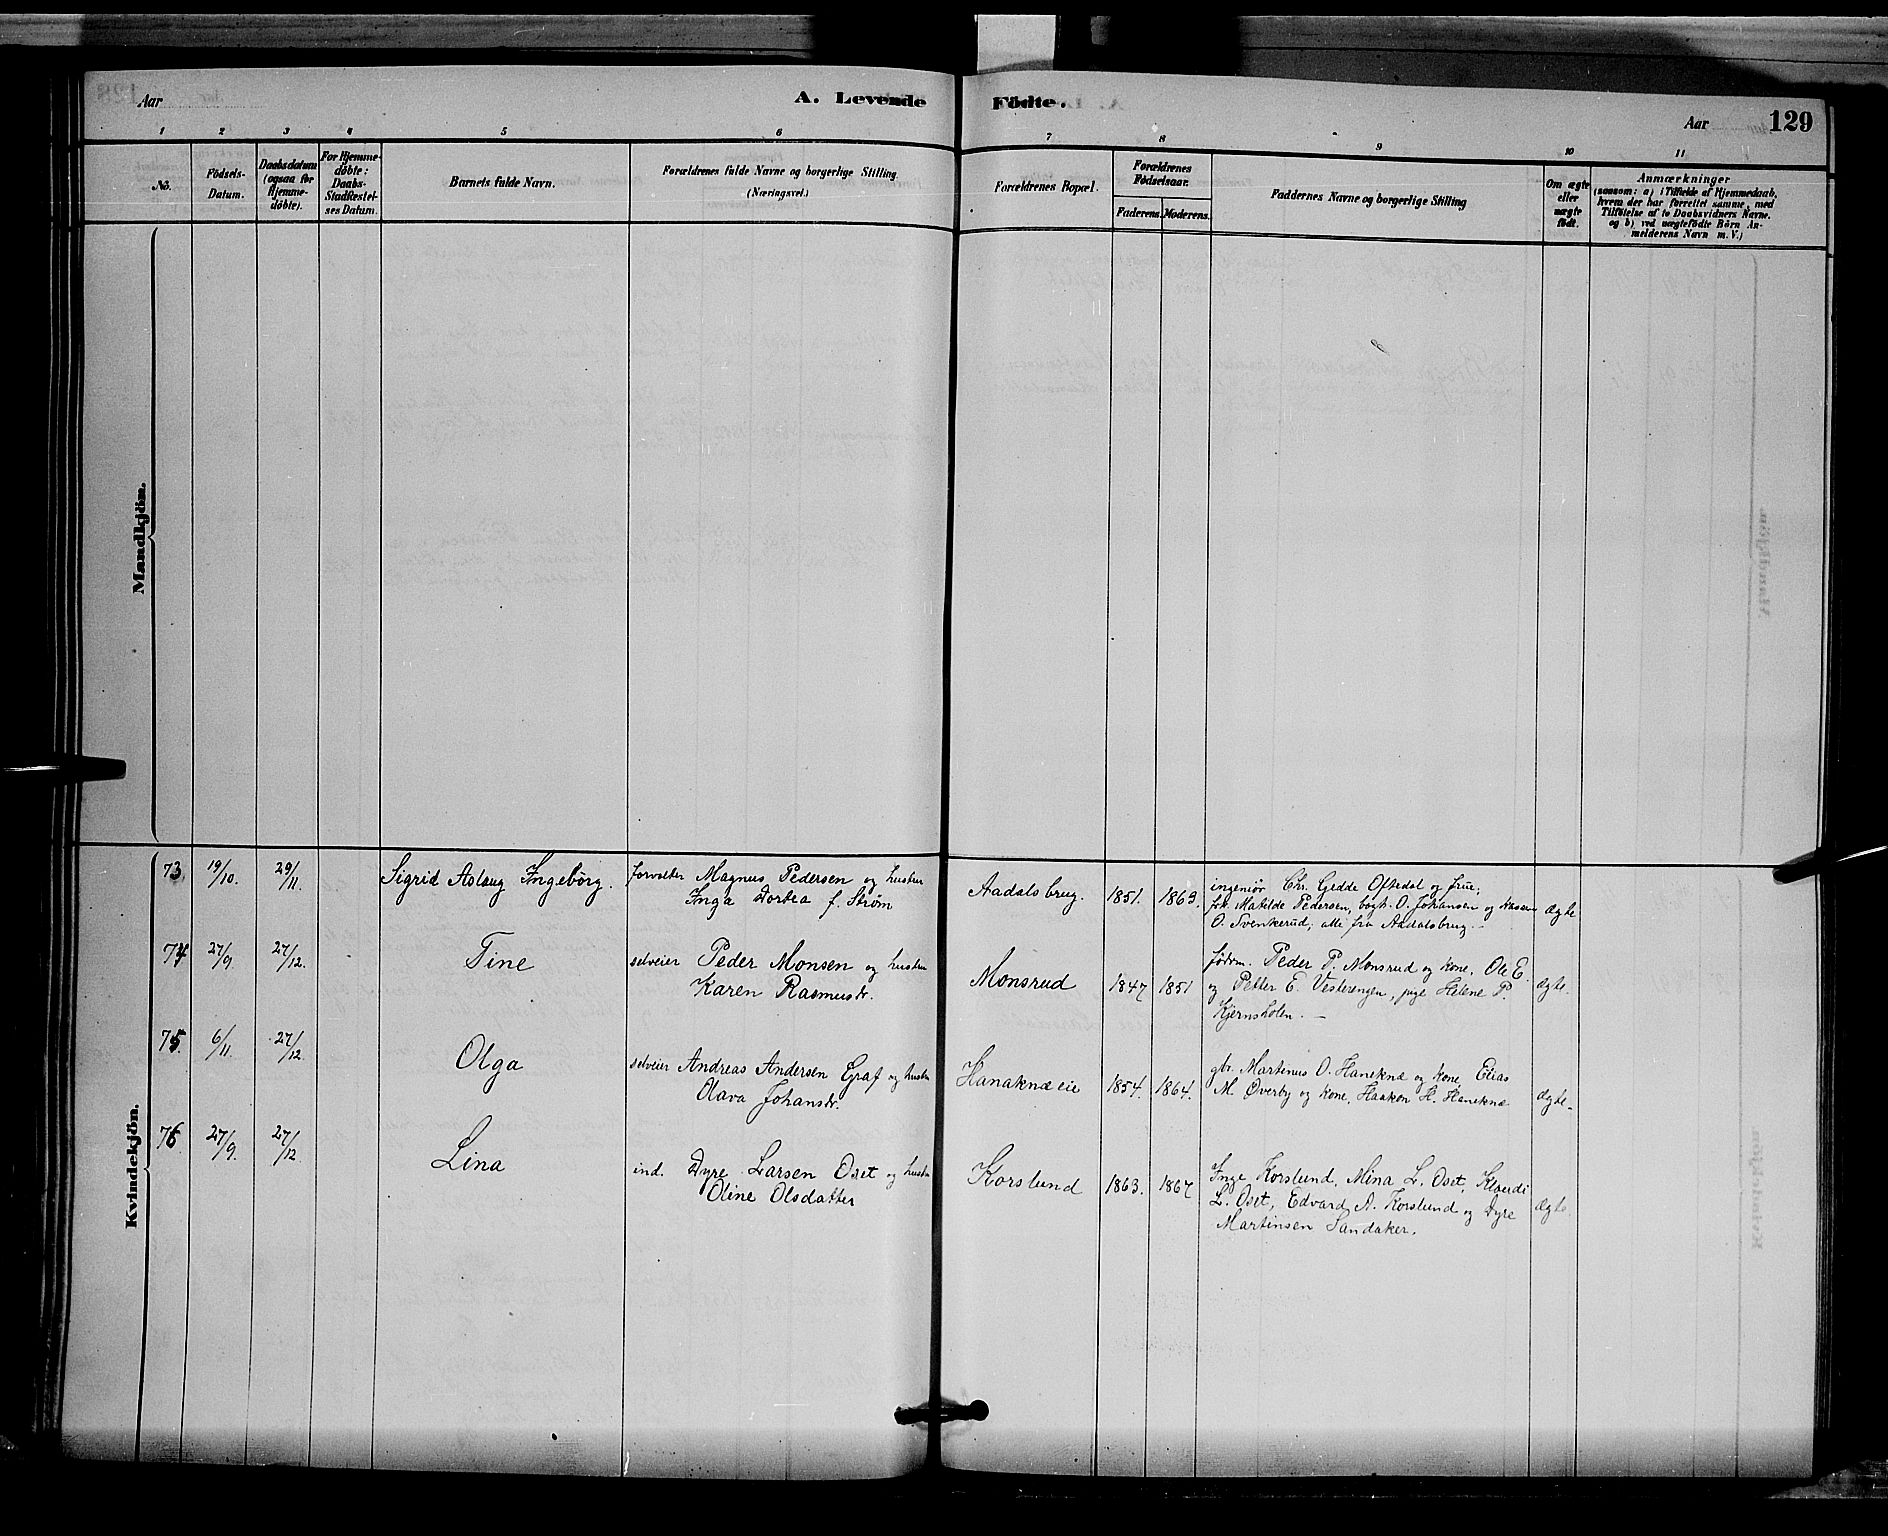 Aar
A. Levende Födte.
Aar 129
1 2 3 4 5 6 7 8 9 10 11
No.
Födsels-Datum.
Daabsdatum (ogsaa for Hjemme-döbte).
For Hjemme-döbte: Daabs-Stadfæstel-ses Datum.
Barnets fulde Navn.
Forældrenes fulde Navne og borgerlige Stilling. (Næringsvei.)
Forældrenes Bopæl.
Forældrenes Födselsaar.
Faderens. Moderens.
Faddernes Navne og borgerlige Stilling
Om ægte eller uægte födt.
Anmærkninger
(saasom: a) i Tilfælde af Hjemmedaab,
hvem der har forrettet samme, med
Tilföielse af to Daabsvidners Navne.
og b) ved uægtefödte Börn An-
melderens Navn m. V.)
Mandkjön.
Kvindekjön.
73. 19/10. 29/11. Sigrid Aslaug Ingeborg. forvalter Magnus Pedersen og hustru
Inga Dortea f. Strøm
Aadalsbrug. 1851. 1863. ingeniør Chr. Gedde Oftedal og frue;
frk. Matilde Pedersen, bogh. O. Johansen og
O. Svenkerud; alle fra Aadalsbrug. –
ægte
74 27/9. 27/12. Tine selveier Peder Monsen og hustru
Karen Rasmusdr.
Monsrud 1847 1851 fødem. Peder P. Monsrud og kone, Ole E.
og Petter E. Vesterengen, pige Helene P.
Kjernsholen. –
ægte.
75. 6/11. 27/12. Olga selveier Andreas Andersen Graf og hustru
Olava Johansdr.
Hanaknæeie 1854. 1864. gbr. Martenus O. Haneknæ og kone, Elias
M. Øverby og kone, Haakon H. Haneknæ
ægte.
76. 27/9. 27/12. Lina ind. Dyre Larsen Oset og hustru
Oline Olsdatter
Korslund 1863. 1867 Inge Korslund, Mina L. Oset, Klaudi
L. Oset, Edvard A. Korslund og Dyre
Martinsen Sandaker.
ægte.